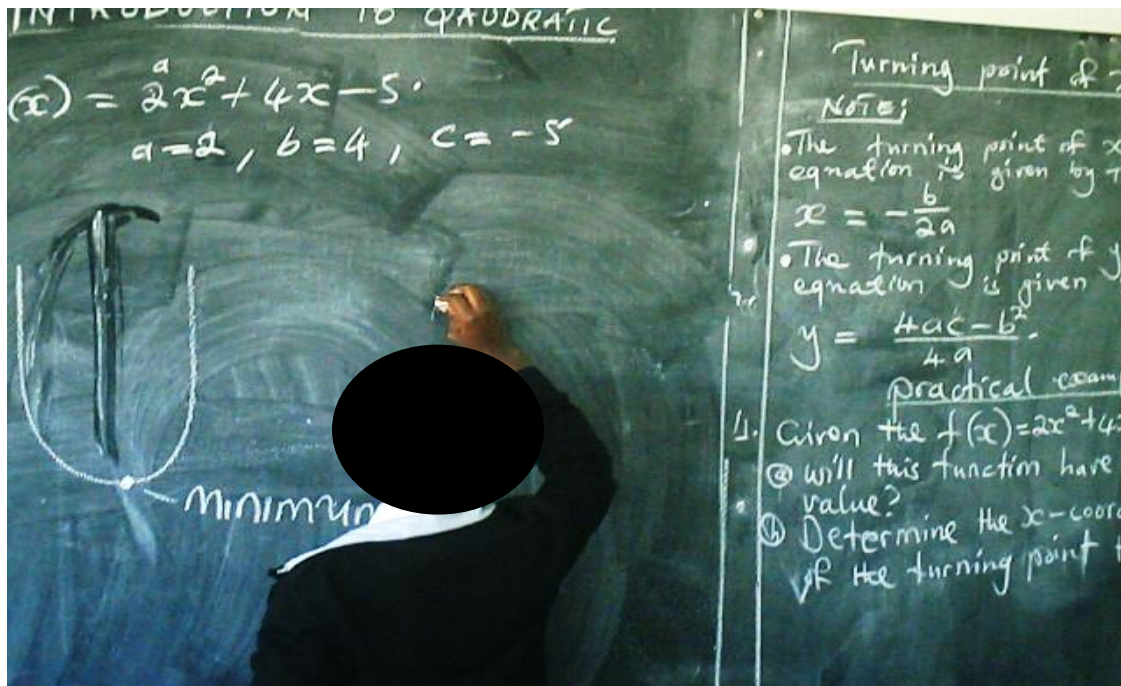 INTRODUCTION TO QAUDRATIC
(x) = 2x² + 4x - 5.
a
a = 2, b = 4, c = -5
Minimum
Turning point of
NOTE;
• The turning point of x
equation is given by
x = - b/2a
• The turning point of y
equation is given
y = 4ac - b²/4a.
practical exam
1. Given the f(x) = 2x² + 4x
(a) will this function have
value?
(b) Determine the x-coord
of the turning point